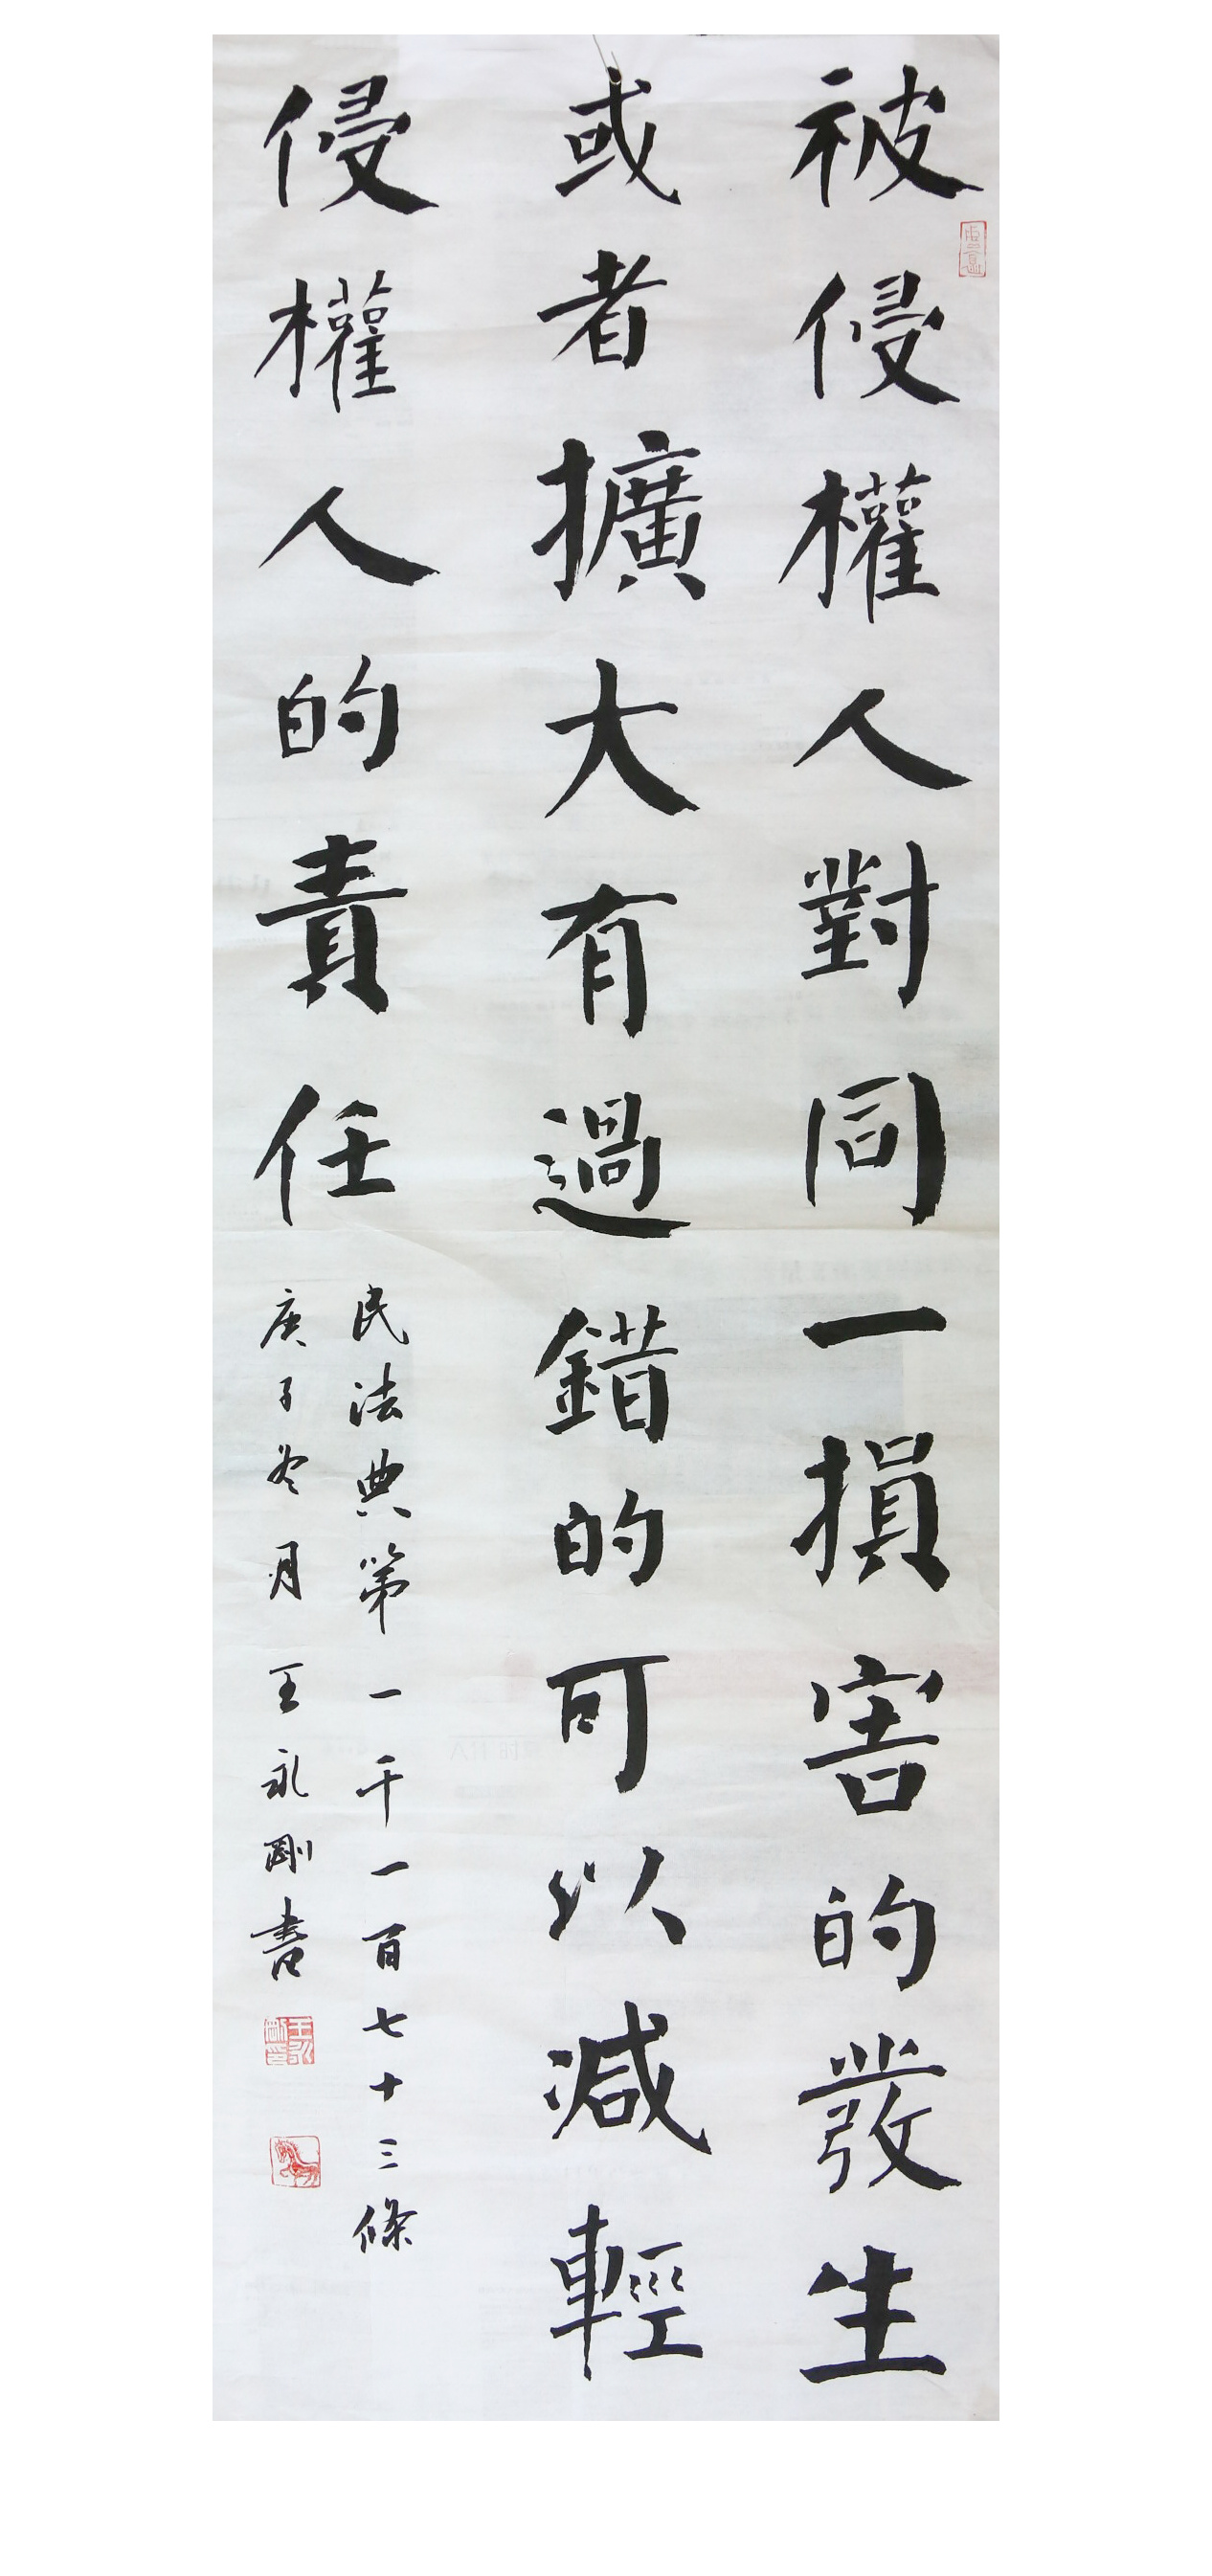 被侵權人對同一損害的發生
或者擴大有過錯的可以減輕
侵權人的責任
民法典第一千一百七十三條
庚子冬月王永剛書